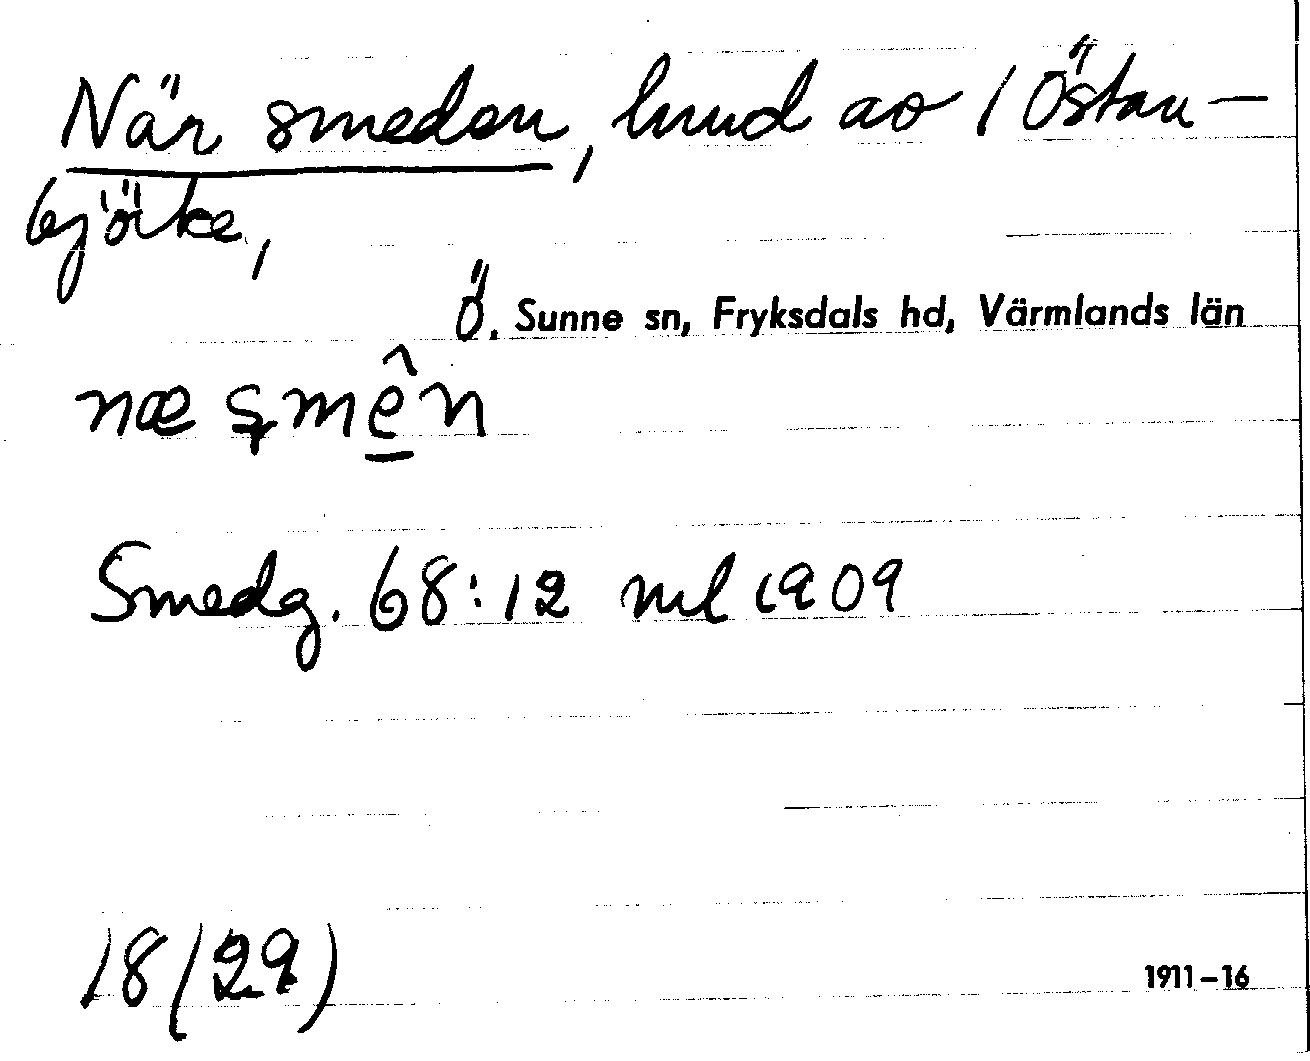 När smeden, hmd av 1 Östan-
björke,
Ö. Sunne sn, Fryksdals hd, Värmlands län
næ s̩mên
Smedg. 68:12 ml 1909
18(29)
1911-16